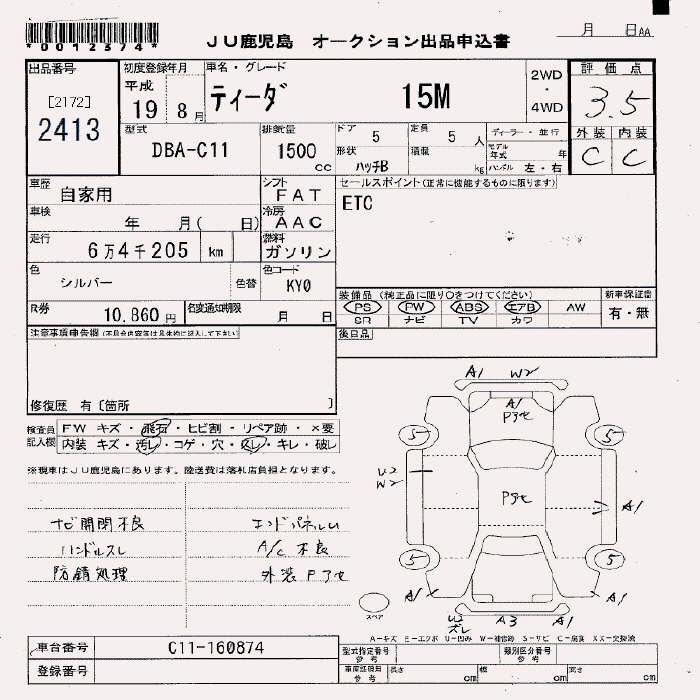 *0012374*
JU鹿児島 オークション出品申込書
月 日AA
出品番号
[2172]
2413
初度登録年月
平成
19 年 8 月
車名・グレード
ティーダ 15M
2WD
・
4WD
評価点
3.5
外装 内装
C C
型式
DBA-C11
排気量
1500
cc
ドア 5
形状 ハッチB
定員 5 人
積載 kg
ディーラー・並行
モデル年式 年
ハンドル 左・右
車歴
自家用
シフト
FAT
車検
年 月( 日)
冷房
AAC
走行
6万4千205 km
燃料
ガソリン
色
シルバー
色替
色コード
KY0
R券
10,860 円
名変通知期限
月 日
セールスポイント(正常に機能するものに限ります)
ETC
装備品(純正品に限り○をつけてください)
PS PW ABS エアB AW
SR ナビ TV カワ
新車保証書
有・無
後日品
注意事項申告欄(不具合内容等は具体的に記入して下さい)
修復歴 有〔箇所 〕
検査員記入欄
FW キズ・飛石・ヒビ割・リペア跡・×要
内装 キズ・汚レ・コゲ・穴・スレ・キレ・破レ
※現車はJU鹿児島にあります。陸送費は落札店負担となります。
ナビ開閉不良
ハンドルスレ
防錆処理
エンドパネルU
A/C 不良
外装Pアセ
A1 W2
A1
Pアセ
5 5
U2
W2
Pアセ
A1
5 5
A1 A1
U2
ズレ
A3 A1
スペア
A-キズ E-エクボ U-凹み W-補修跡 S-サビ C-腐食 XX-交換済
車台番号 C11-160874
登録番号
型式指定番号
参考
類別区分番号
参考
車庫証明用
参考
長さ cm
幅 cm
高さ cm